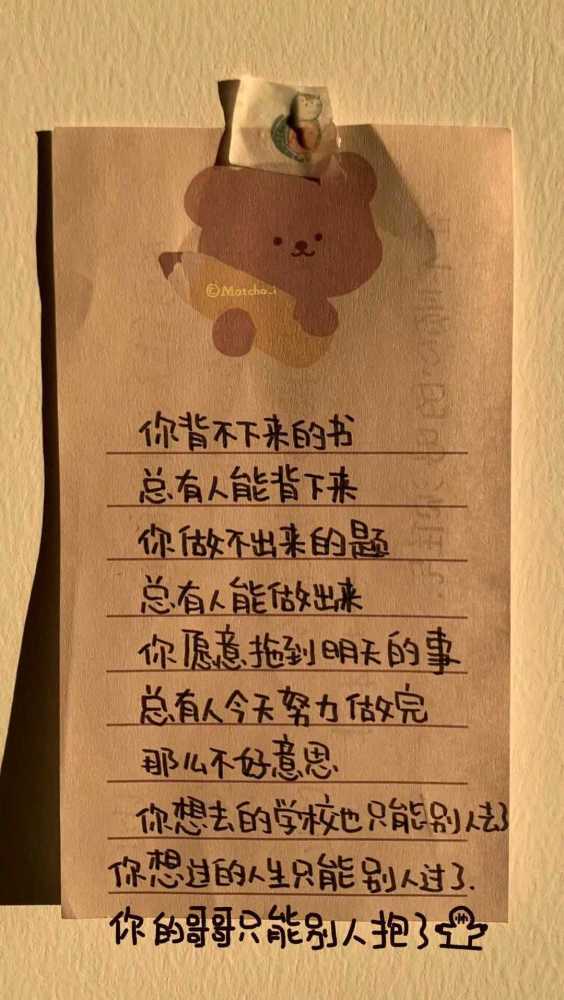 ©Matcha_i
你背不下来的书
总有人能背下来
你做不出来的题
总有人能做出来
你愿意拖到明天的事
总有人今天努力做完
那么不好意思
你想去的学校也只能别人去了
你想过的人生只能别人过了.
你的哥哥只能别人抱了